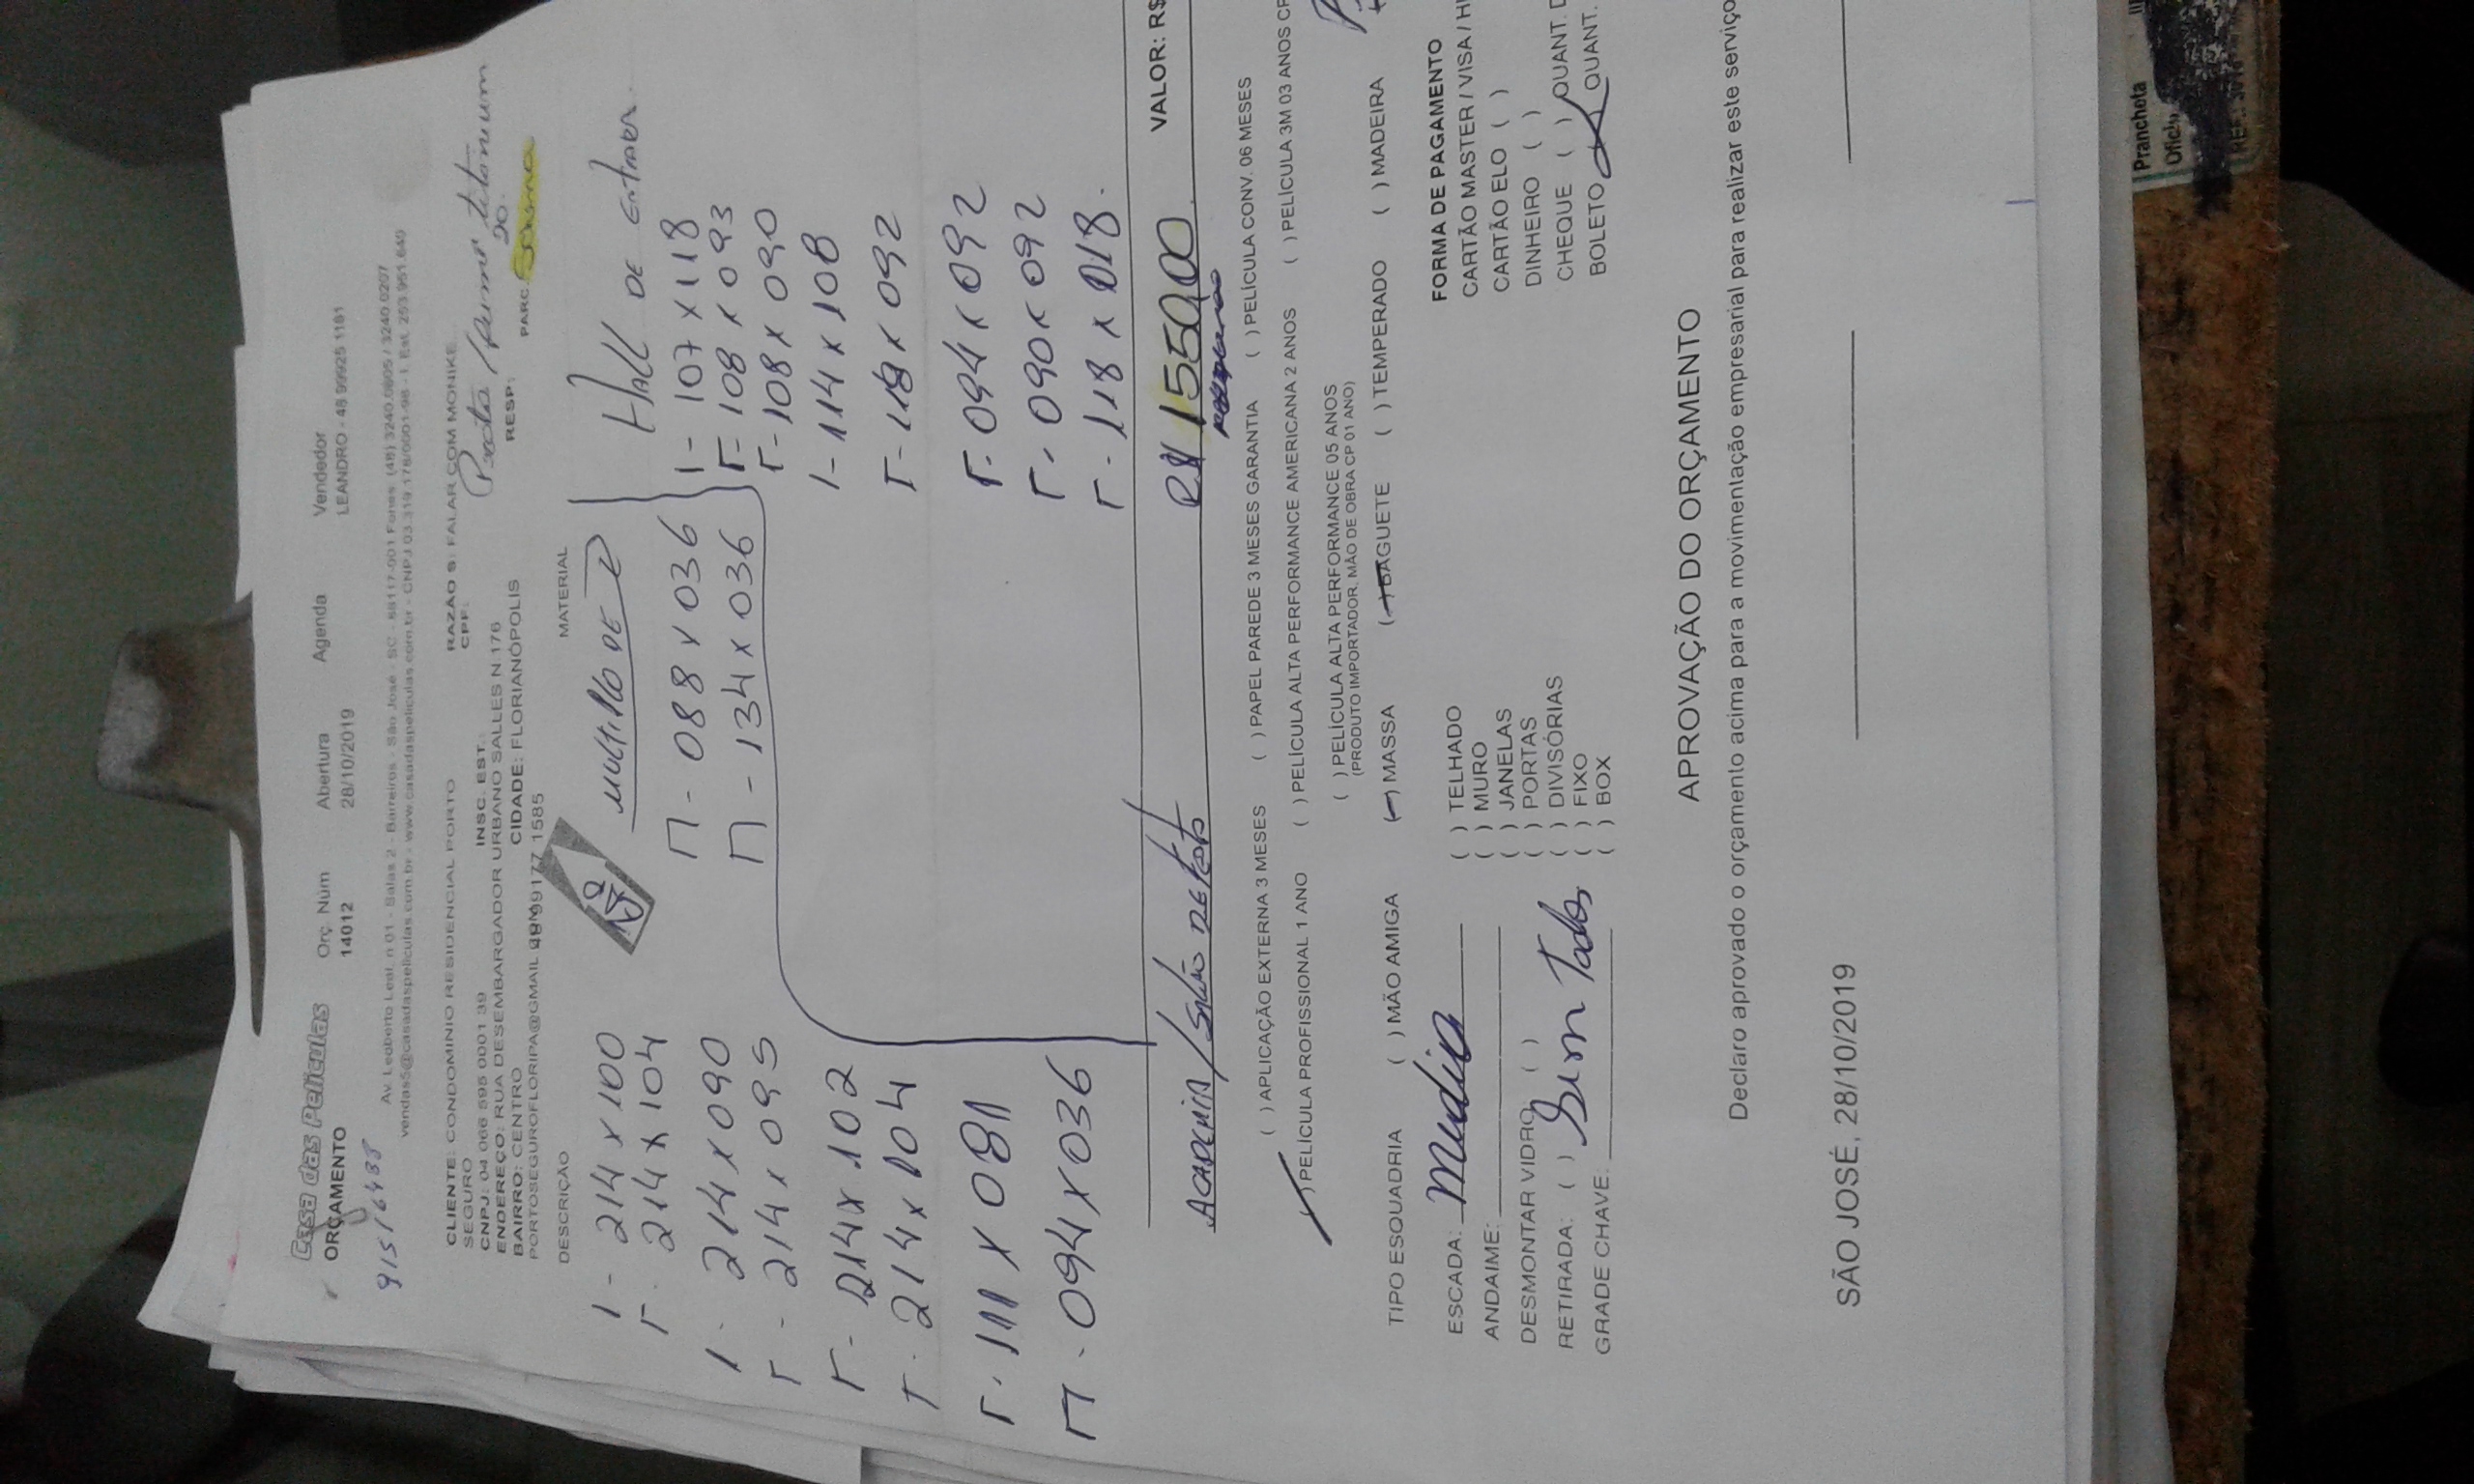 Casa das Películas
ORÇAMENTO
Orç. Núm
14012
Abertura
28/10/2019
Agenda
Vendedor
LEANDRO - 48 99925 1181
Av. Leoberto Leal, n 01 - Salas 2 - Barreiros - São José - SC - 88117-001 Fones (48) 3240.0805 / 3240.0207
vendas5@casadaspeliculas.com.br - www.casadaspeliculas.com.br - CNPJ 03.319.176/0001-98 - I. Est. 253.951.640
CLIENTE: CONDOMINIO RESIDENCIAL PORTO SEGURO
RAZÃO S: FALAR COM MONIKE
CNPJ: 04 066 595 0001 39
INSC. EST.:
CPF:
ENDEREÇO: RUA DESEMBARGADOR URBANO SALLES N 176
BAIRRO: CENTRO
CIDADE: FLORIANÓPOLIS
RESP:
PARC.
PORTOSEGUROFLORIPA@GMAIL
99177 1585
DESCRIÇÃO
MATERIAL
Hall DE Entrada
1 - 214 x 100
214 x 104
1 - 214 x 090
214 x 095
214 x 102
214 x 104
111 x 081
094 x 036
088 x 036
134 x 036
1 - 107 x 118
108 x 093
108 x 090
1 - 114 x 108
118 x 092
094 x 092
090 x 092
118 x 018
ACADEMIA / Salão DE Festa
R$ 1550,00
VALOR: R$
( ) APLICAÇÃO EXTERNA 3 MESES
( ) PAPEL PAREDE 3 MESES GARANTIA
( ) PELÍCULA CONV. 06 MESES
) PELÍCULA PROFISSIONAL 1 ANO
( ) PELÍCULA ALTA PERFORMANCE AMERICANA 2 ANOS
( ) PELÍCULA 3M 03 ANOS
( ) PELÍCULA ALTA PERFORMANCE 05 ANOS
(PRODUTO IMPORTADOR. MÃO DE OBRA CP 01 ANO)
TIPO ESQUADRIA
( ) MÃO AMIGA
( ) MASSA
( ) BAGUETE
( ) TEMPERADO
( ) MADEIRA
ESCADA: Media
ANDAIME:
DESMONTAR VIDRO ( )
RETIRADA: ( ) Sim Todos
GRADE CHAVE:
( ) TELHADO
( ) MURO
( ) JANELAS
( ) PORTAS
( ) DIVISÓRIAS
( ) FIXO
( ) BOX
FORMA DE PAGAMENTO
CARTÃO MASTER / VISA /
CARTÃO ELO ( )
DINHEIRO ( )
CHEQUE ( ) QUANT.
BOLETO QUANT.
APROVAÇÃO DO ORÇAMENTO
Declaro aprovado o orçamento acima para a movimentação empresarial para realizar este serviço
SÃO JOSÉ, 28/10/2019
Prancheta